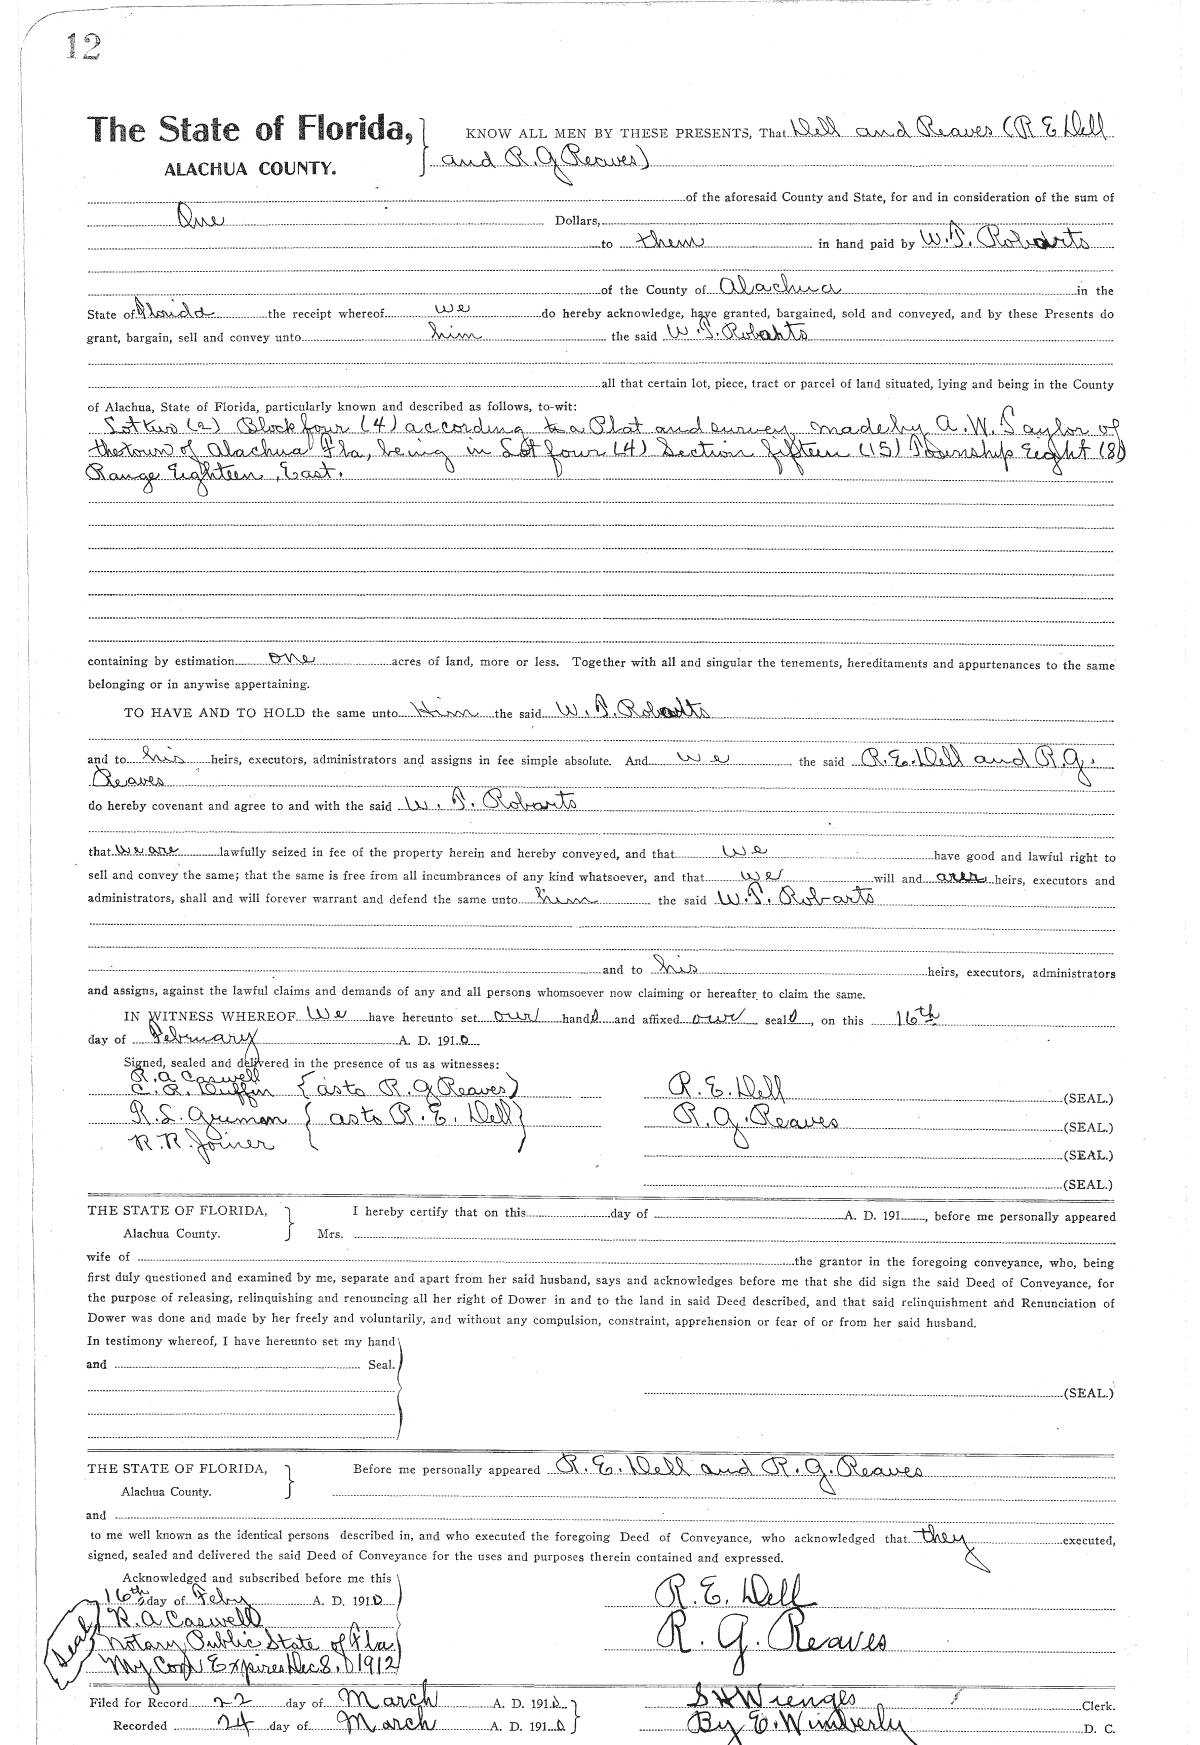 12
The State of Florida, KNOW ALL MEN BY THESE PRESENTS, That Dell and Reaves (R E Dell
ALACHUA COUNTY. and R. G Reaves)
of the aforesaid County and State, for and in consideration of the sum of
One Dollars,
to them in hand paid by W. T. Robarts
of the County of Alachua in the
State of Florida the receipt whereof we do hereby acknowledge, have granted, bargained, sold and conveyed, and by these Presents do
grant, bargain, sell and convey unto him the said W. T. Robarts
all that certain lot, piece, tract or parcel of land situated, lying and being in the County
of Alachua, State of Florida, particularly known and described as follows, to-wit:
Lot two (2) Block four (4) according to a Plat and survey made by A. W. Taylor of
the town of Alachua Fla, being in Lot four (4) Section fifteen (15) Township Eight (8)
Range Eighteen, East.
containing by estimation one acres of land, more or less. Together with all and singular the tenements, hereditaments and appurtenances to the same
belonging or in anywise appertaining.
TO HAVE AND TO HOLD the same unto Him the said W. T. Robarts
and to his heirs, executors, administrators and assigns in fee simple absolute. And we the said R. E. Dell and R. G.
Reaves
do hereby covenant and agree to and with the said W. T. Robarts
that we are lawfully seized in fee of the property herein and hereby conveyed, and that we have good and lawful right to
sell and convey the same; that the same is free from all incumbrances of any kind whatsoever, and that we will and our heirs, executors and
administrators, shall and will forever warrant and defend the same unto him the said W. T. Robarts
and to his heirs, executors, administrators
and assigns, against the lawful claims and demands of any and all persons whomsoever now claiming or hereafter to claim the same.
IN WITNESS WHEREOF We have hereunto set our hands and affixed our seals, on this 16th
day of February A. D. 1910
Signed, sealed and delivered in the presence of us as witnesses:
R. A Caswell
C. R. Duffin (as to R. G Reaves) R. E. Dell (SEAL.)
R. L. { as to R. E. Dell } R. G. Reaves (SEAL.)
R. R. Joiner (SEAL.)
(SEAL.)
THE STATE OF FLORIDA, I hereby certify that on this day of A. D. 191 , before me personally appeared
Alachua County. Mrs.
wife of the grantor in the foregoing conveyance, who, being
first duly questioned and examined by me, separate and apart from her said husband, says and acknowledges before me that she did sign the said Deed of Conveyance, for
the purpose of releasing, relinquishing and renouncing all her right of Dower in and to the land in said Deed described, and that said relinquishment and Renunciation of
Dower was done and made by her freely and voluntarily, and without any compulsion, constraint, apprehension or fear of or from her said husband.
In testimony whereof, I have hereunto set my hand
and Seal.
(SEAL.)
THE STATE OF FLORIDA, Before me personally appeared R. E. Dell and R. G. Reaves
Alachua County.
and
to me well known as the identical persons described in, and who executed the foregoing Deed of Conveyance, who acknowledged that they executed,
signed, sealed and delivered the said Deed of Conveyance for the uses and purposes therein contained and expressed.
Acknowledged and subscribed before me this
16th day of Feby A. D. 1910 R. E. Dell
R. A Caswell
Seal Notary Public State of Fla. R. G. Reaves
My Com Expires Dec 8. 1912
Filed for Record 22 day of March A. D. 1910 S H Wienges Clerk.
Recorded 24 day of March A. D. 1910 By E. Wimberly D. C.